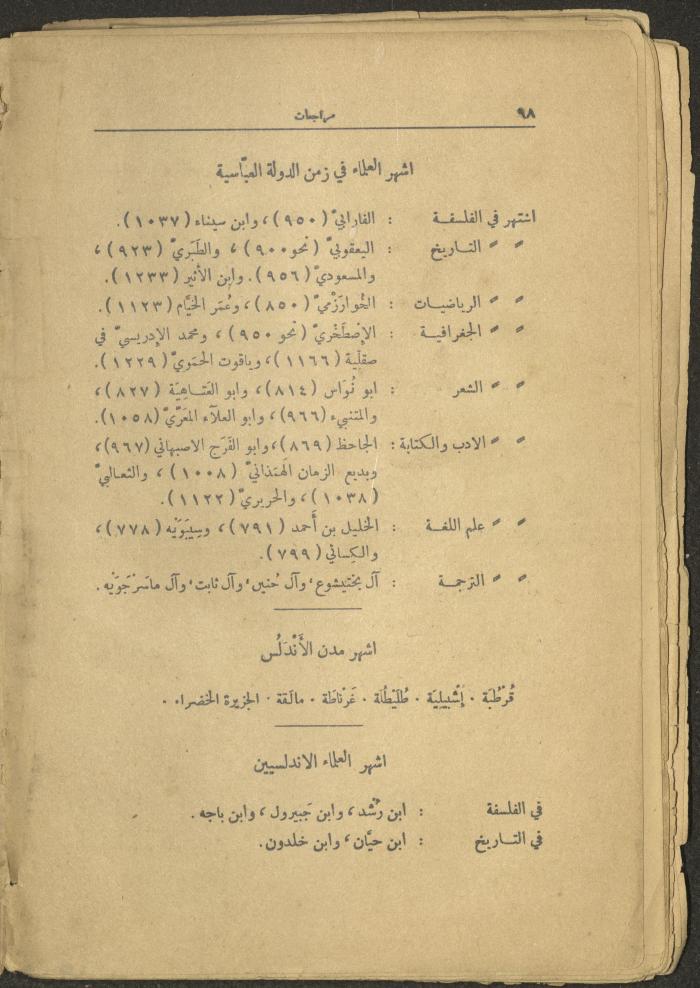 ٩٨
مراجعات
اشهر العلماء في زمن الدولة العبّاسية
اشتهر في الفلسفة : الفارابيّ (٩٥٠)، وابن سيناء (١٠٣٧).
〃 〃 التاريخ : اليعقوبيّ (نحو ٩٠٠)، والطَبَريّ (٩٢٣)،
والمسعوديّ (٩٥٦). وابن الأثير (١٢٣٣).
〃 〃 الرياضيات : الخُوارَزْميّ (٨٥٠)، وعُمَر الخيَّام (١١٢٣).
〃 〃 الجغرافية : الإِصطَخْريّ (نحو ٩٥٠)، ومحمد الإدريسيّ في
صقلّية (١١٦٦)، وياقوت الحَمَويّ (١٢٢٩).
〃 〃 الشعر : ابو نُوَاس (٨١٤)، وابو العَتَاهِيَة (٨٢٧)،
والمتنبيء (٩٦٦)، وابو العلآء المعَرّيّ (١٠٥٨).
〃 〃 الادب والكتابة : الجاحظ (٨٦٩)، وابو الفَرَج الاصبهاني (٩٦٧)،
وبديع الزمان الهَمَذانيّ (١٠٠٨)، والثعالبيّ
(١٠٣٨)، والحريريّ (١١٢٢).
〃 〃 علم اللغة : الخليل بن أَحمد (٧٩١)، وسِيبَوَيْه (٧٧٨)،
والكِسائي (٧٩٩).
〃 〃 الترجمة : آل بختيشوع، وآل حُنين، وآل ثابت، وآل ماسَرْجَوَيْه.
اشهر مدن الأَنْدَلُس
قُرْطُبَة . إِشْبِيلِيَة . طُلَيْطُلَة . غَرْناطَة . مالَقة . الجزيرة الخضراء .
اشهر العلماء الاندلسيين
في الفلسفة : ابن رُشْد، وابن جَبيرول، وابن باجه.
في التاريخ : ابن حيَّان، وابن خلدون.